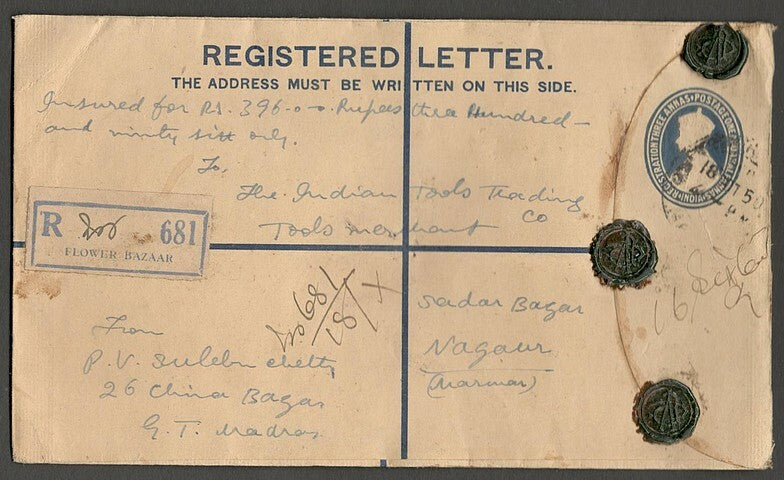 REGISTERED LETTER.
THE ADDRESS MUST BE WRITTEN ON THIS SIDE.
Insured for Rs. 396-0-0. Rupees three Hundred-
and ninty six only.
To,
The Indian Tools Trading
Co
Tools merchant
R 681
FLOWER BAZAAR
No 681
18/X
Sadar Bazar
Nagaur
(Marwar)
From
P. V. chetty
26 China Bazar
G. T. Madras
REGISTRATION THREE ANNAS
18
50
16